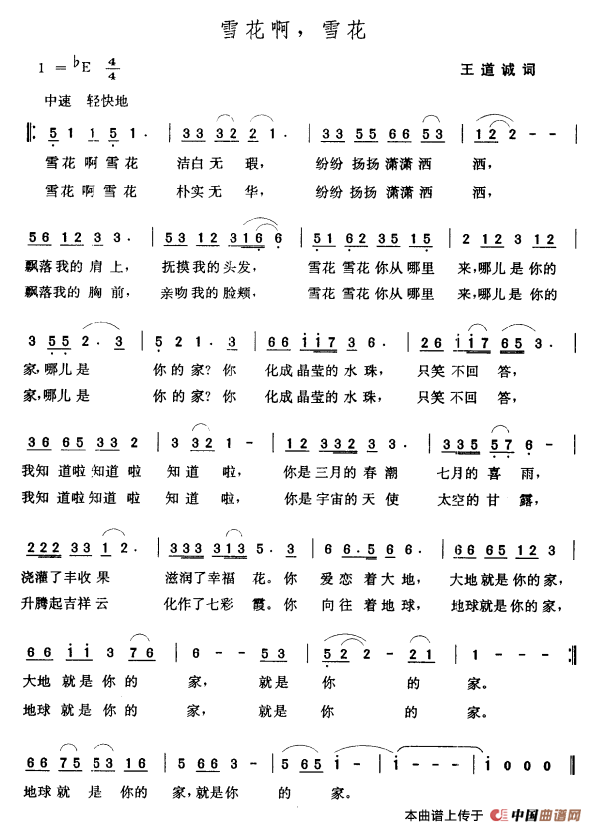 雪花啊，雪花
1 = ♭E 4/4
王道诚 词
中速 轻快地
‖: 5 1 1 5 1 · | 3 3 3 2 2 2 1 · | 3 3 5 5 6 6 5 3 | 1 2 2 - - |
雪花 啊 雪花 洁白 无 瑕， 纷纷 扬扬 潇潇 洒 洒，
雪花 啊 雪花 朴实 无 华， 纷纷 扬扬 潇潇 洒 洒，
5 6 1 2 3 3 · | 5 3 1 2 3 1 6 6 · | 5 1 6 2 3 5 1 5 | 2 1 2 3 1 2 |
飘落 我的 肩 上， 抚摸 我的 头发， 雪花 雪花 你从 哪里 来，哪儿 是 你的
飘落 我的 胸 前， 亲吻 我的 脸颊， 雪花 雪花 你从 哪里 来，哪儿 是 你的
3 5 5 2 · 3 | 5 2 1 · 3 | 6 6 i i 7 3 6 · | 2 6 i i 7 6 5 3 · |
家，哪儿 是 你 的 家？你 化成 晶莹的 水 珠， 只笑 不回 答，
家，哪儿 是 你 的 家？你 化成 晶莹的 水 珠， 只笑 不回 答，
3 6 6 5 3 3 2 | 3 3 2 1 - | 1 2 3 3 3 2 3 · | 3 3 5 5 7 6 · |
我知 道啦 知道 啦 知 道 啦， 你是 三月的 春 潮 七月的 喜 雨，
我知 道啦 知道 啦 知 道 啦， 你是 宇宙的 天 使 太空的 甘 露，
2 2 2 3 3 1 2 · | 3 3 3 3 3 3 1 3 5 · 3 | 6 6 · 5 6 6 | 5 6 6 5 5 3 2 |
浇灌了 丰收 果 滋润了 幸福 花。你 爱恋 着 大地， 大地 就是 你的 家，
升腾起 吉祥 云 化作了 七彩 霞。你 向往 着 地球， 地球 就是 你的 家，
6 6 i i 3 7 6 | 6 - - 5 3 | 5 2 2 - 2 1 | 1 - - - :‖
大地 就是 你 的 家， 就是 你 的 家。
地球 就是 你 的 家， 就是 你 的 家。
6 6 7 6 7 5 5 3 1 6 | 5 6 6 3 - | 5 6 5 i i - | i - - i | i 0 0 0 ‖
地球 就 是 你的 家，就是你 的 家。
本曲谱上传于 中国曲谱网